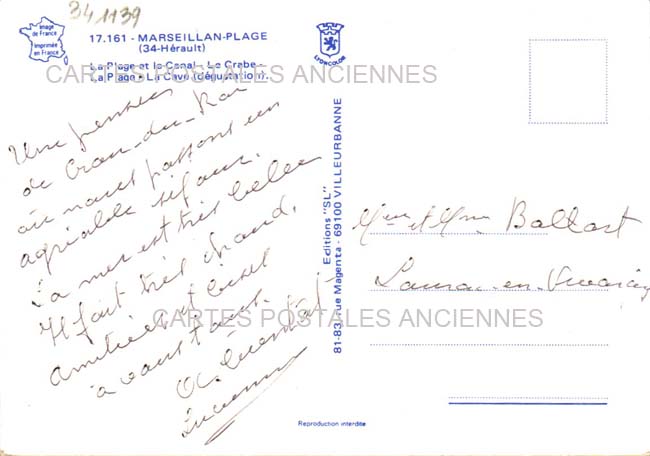 341139
Image
de France
Imprimée
en France
17.161 - MARSEILLAN-PLAGE
(34-Hérault)
La Plage et le Canal - Le Crabe -
La Plage - La Cave (dégustation).
LYONCOLOR
CARTES POSTALES ANCIENNES
Une pensée
de Grau-du-Roi
où nous passons un
agréable séjour.
La mer est très belle
Il fait très chaud.
Amitiés et bises
à vous tous.
Lucienne
Editions "SL"
81-83, rue Magenta - 69100 VILLEURBANNE
Mme et Mr Ballart
en
CARTES POSTALES ANCIENNES
Reproduction interdite